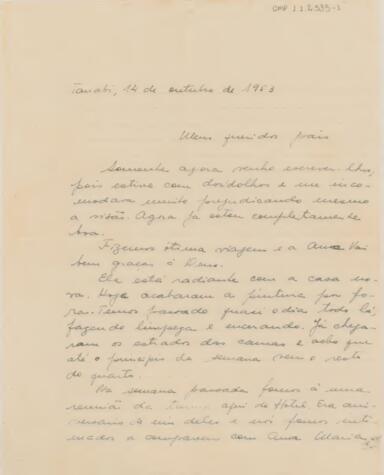 CMP 1.1.2.535-1
Tanabi, 14 de outubro de 1953
Meus queridos pais
Somente agora venho escrever-lhes,
pois estive com dordolhos e me inco-
modava muito prejudicando mesmo
a visão. Agora já estou completamente
boa.
Fizemos ótima viagem e a Ana vai
bem graças à Deus.
Ela está radiante com a casa no-
va. Hoje acabaram a pintura por fo-
ra. Temos passado quasi o dia todo lá,
fazendo limpeza e encerando. Já chega-
ram os estrados das camas e acho que
até o princípio da semana vem o resto
do quarto.
Na semana passada fomos à uma
reunião da turma aqui do Hotel. Era ani-
versario de um deles e nós fomos inti-
mados a comparecer com Ana Maria e